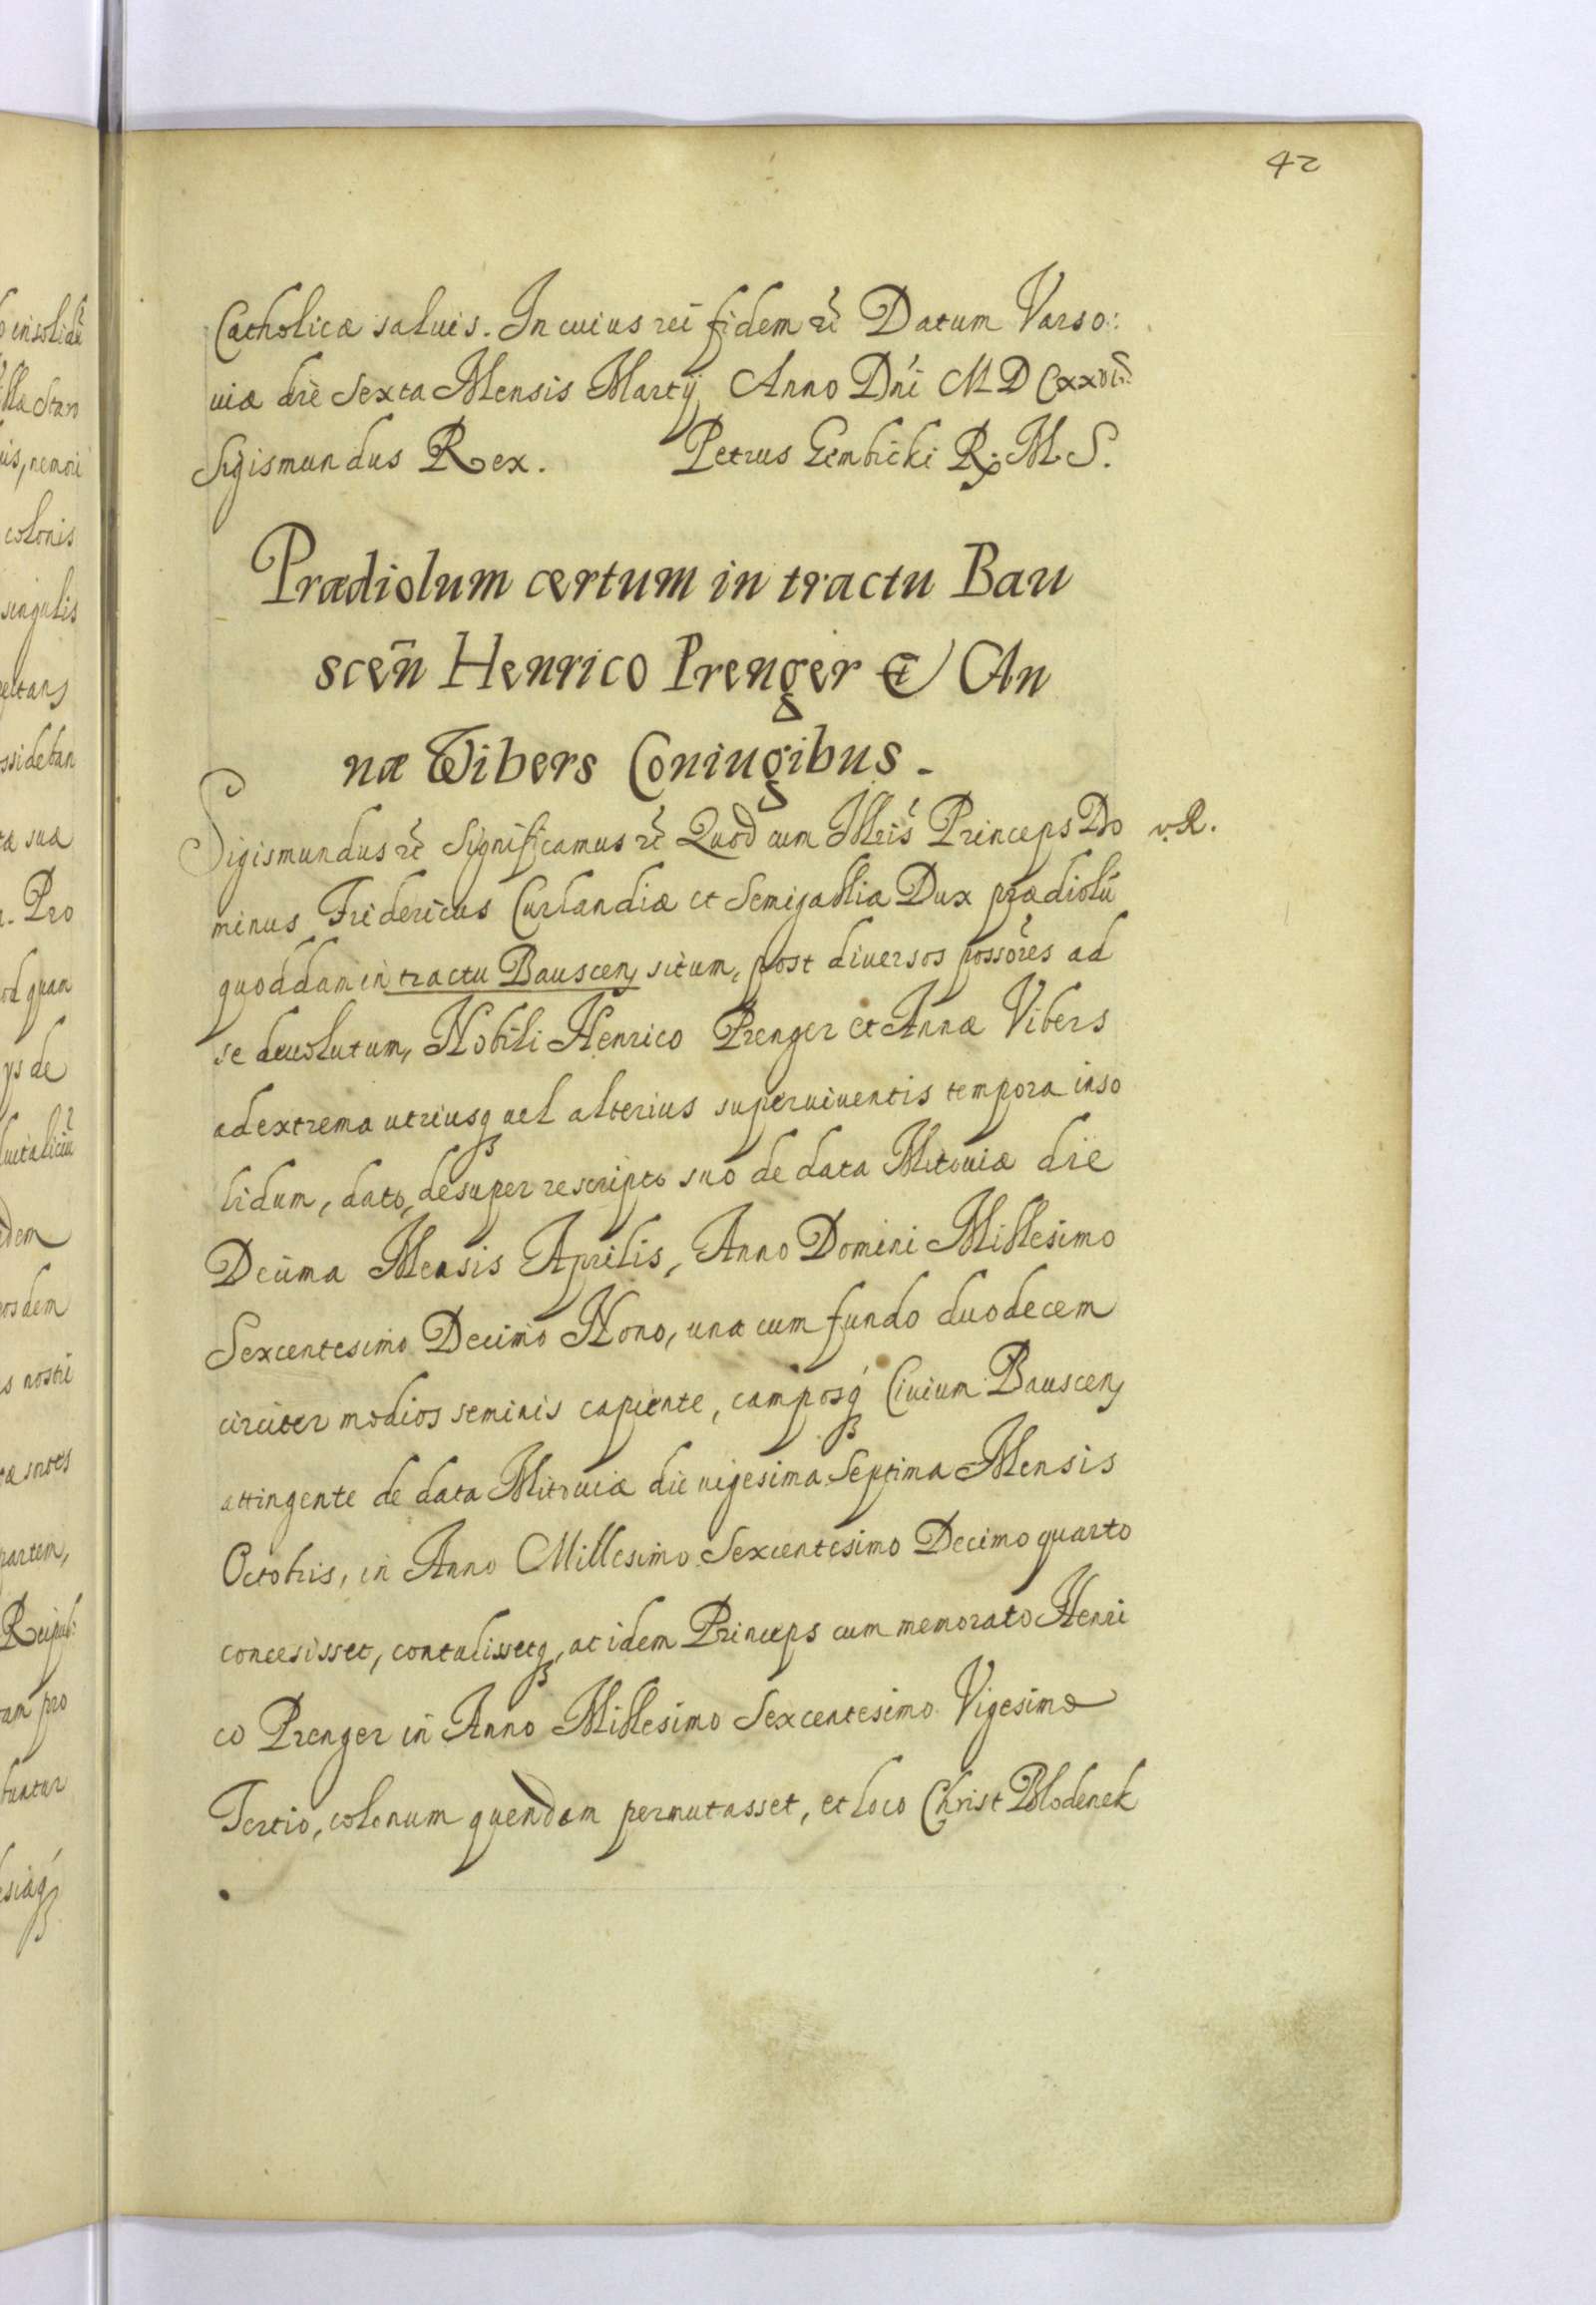 42
Catholicæ saluis. In cuius rei fidem etc̃ Datum Varso:
uiæ die Sexta Mensis Martij Anno Dńi
Sigismundus Rex. Petrus Gembicki R. M. S.
Prædiolum certum in tractu Bau
sceñ Henrico Prenger & An
næ Wibers Coniugibus.
Sigismundus etc̃ Significamus etc̃ Quod cum Illris̃ Princeps Do
v. R.
minus Fridericus Curlandiæ et Semigallia Dux prædiolũ
quoddam in tractu Bauscen situm, post diuersos possores ad
se deuolutum, Nobili Henrico Prenger et Annæ Vibers
ad extrema utriusq uel alterius superuiuentis tempora inso
lidum, dato, desuper rescripto suo de data Mitouiæ die
Decima Mensis Aprilis, Anno Domini Millesimo
Sexcentesimo Decimo Nono, una cum fundo duodecem
circiter modios seminis capiente, camposq́ Ciuium Bauscen
attingente de data Mitouiæ die uigesima Septima Mensis
Octobris, in Anno Millesimo Sexcentesimo Decimo quarto
concesisset, contulissetq, ac idem Princeps cum memorato Henri
co Prenger in Anno Millesimo Sexcentesimo Vigesimo
Tertio, colonum quendam permutasset, et loco Christ Blodenek